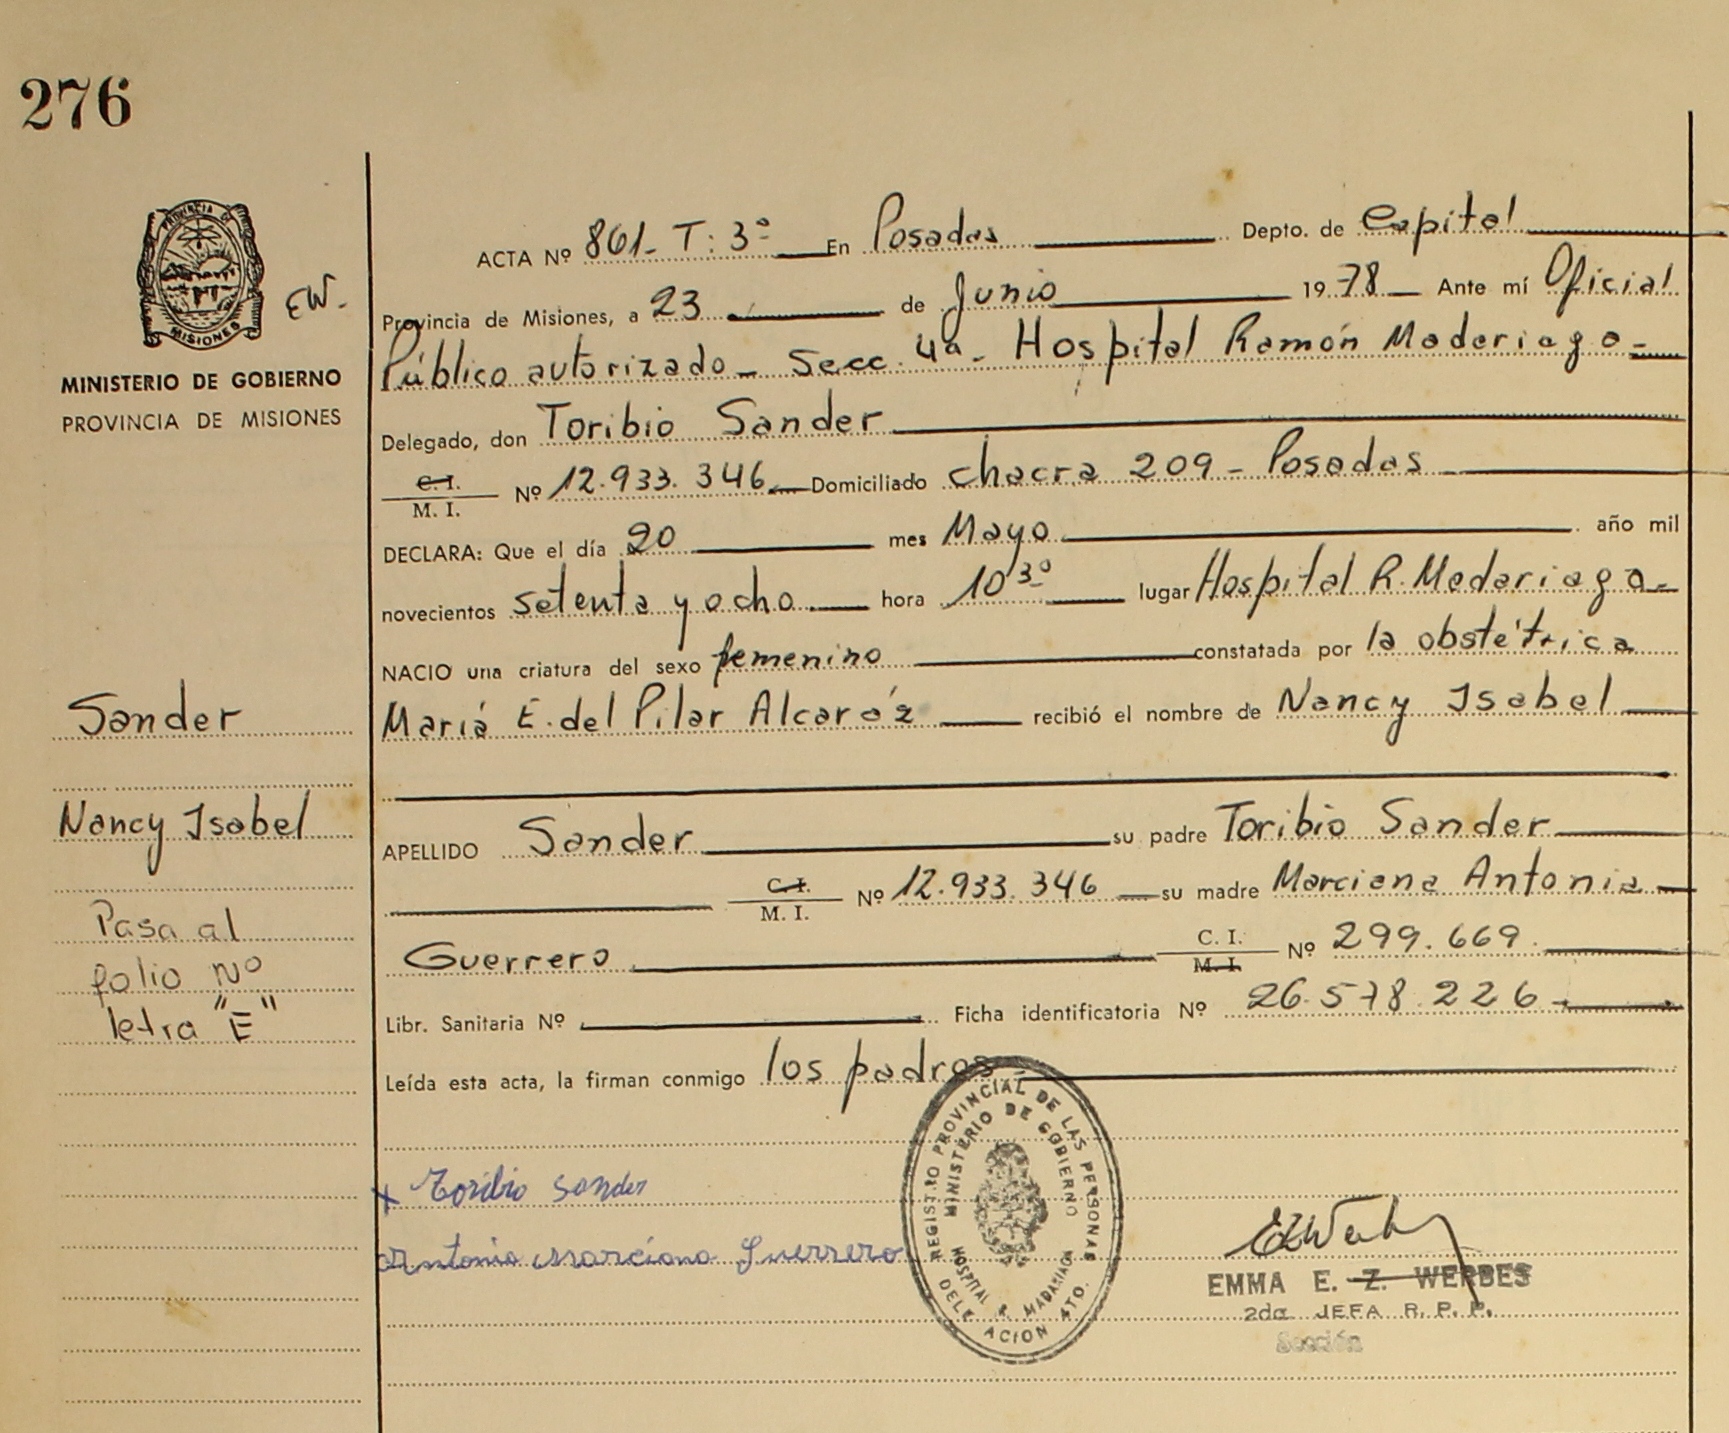 276
PROVINCIA DE
MISIONES
EW.
MINISTERIO DE GOBIERNO
PROVINCIA DE MISIONES
ACTA Nº 861- T: 3º En Posadas Depto. de Capital
Provincia de Misiones, a 23 de Junio 1978 Ante mí Oficial
Público autorizado - Secc. 4ª - Hospital Ramón Madariaga -
Delegado, don Toribio Sander
C. I.
M. I. Nº 12.933.346 Domiciliado chacra 209 - Posadas
DECLARA: Que el día 20 mes Mayo año mil
novecientos setenta y ocho hora 10 30 lugar Hospital R. Madariaga -
NACIO una criatura del sexo femenino constatada por la obstétrica
Mariá E. del Pilar Alcaráz recibió el nombre de Nancy Isabel
APELLIDO Sander su padre Toribio Sander
C. I.
M. I. Nº 12.933.346 su madre Marciana Antonia
Guerrero C. I.
M. I. Nº 299.669.
Libr. Sanitaria Nº Ficha identificatoria Nº 26.578.226
Leída esta acta, la firman conmigo los padres
Sander
Nancy Isabel
Pasa al
folio Nº
letra "E"
x Toribio Sander
Antonia Marciana Guerrero
REGISTRO PROVINCIAL DE LAS PERSONAS
MINISTERIO DE GOBIERNO
HOSPITAL R. MADARIAGA
DELEGACION 4TO.
EMMA E. Z. WERBES
2da JEFA R. P. P.
Sección